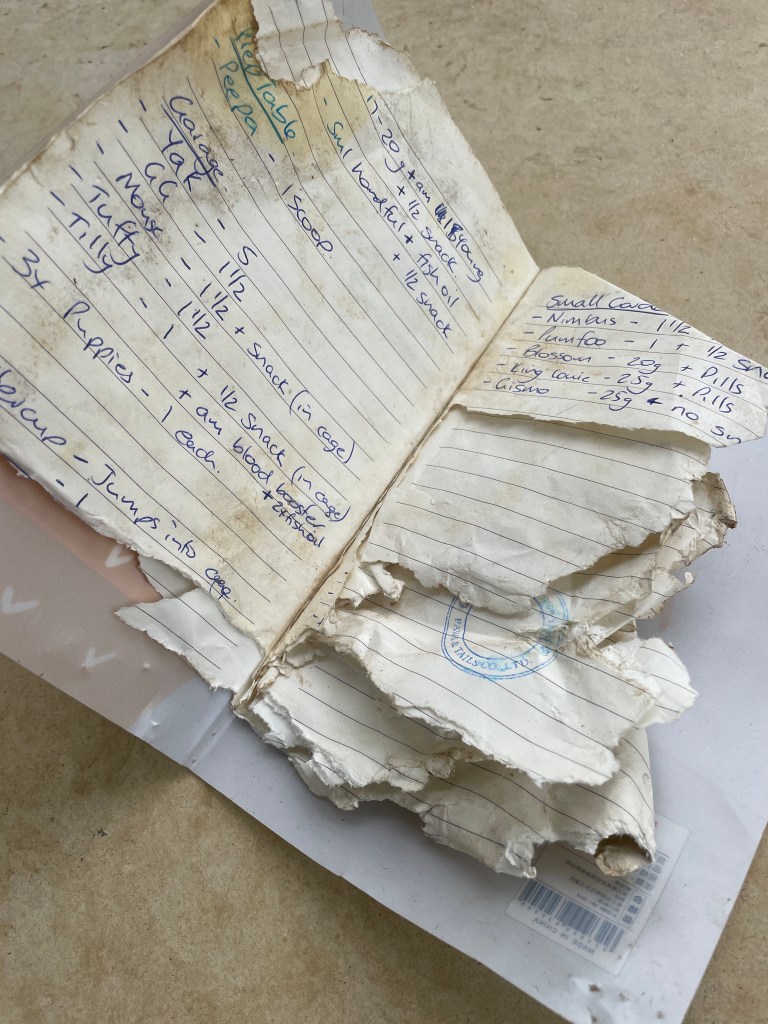 17-20g + am
+ 1/2 snack
- Sml handful + fish oil
+ 1/2 snack
Table
- Peepa - 1 scoop.
Garage
- Yak - 5
- GG - 1 1/2
- Mouse - 1 1/2 + snack (in cage)
- Tuffy - 1 1/2
- Tilly - 1 + 1/2 snack (in cage)
+ am blood booster
+ 2x fish oil
- 3x Puppies - 1 each.
- Jumps into cage.
- 1
Small
- Nimbus - 1 1/2
- Pumfoo - 1 + 1/2
- Blossom - 20g + Pills
- King Louie - 25g + Pills
- Gismo - 25g + no
TAILS CO.
MADE IN CHINA